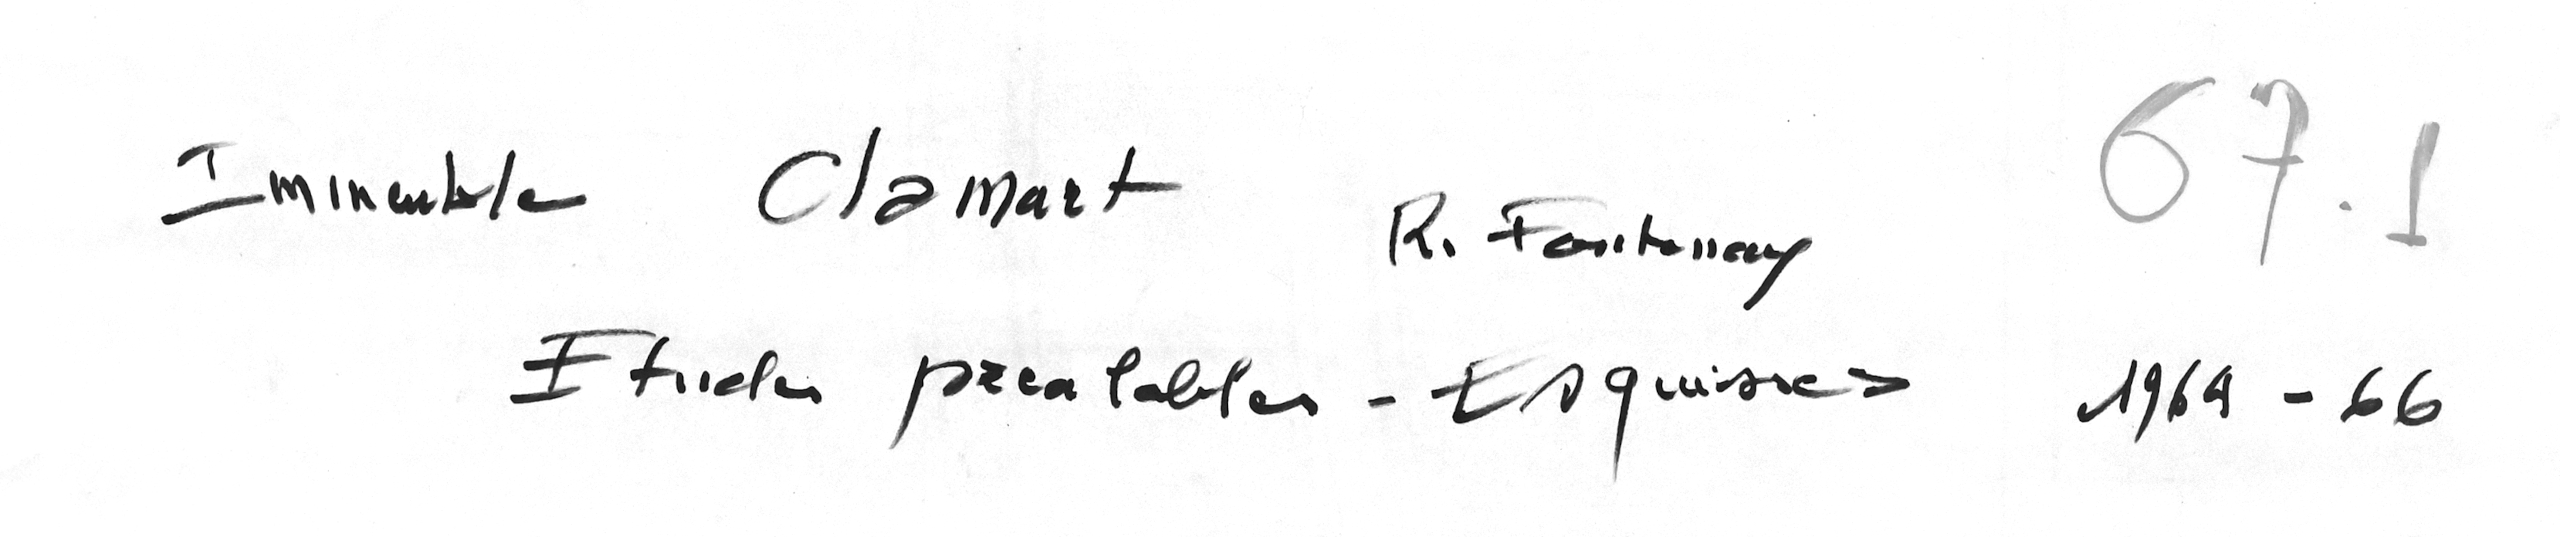 Immeuble Clamart R. Fontenay 67.1
Etudes prealables - Esquisses 1964 - 66